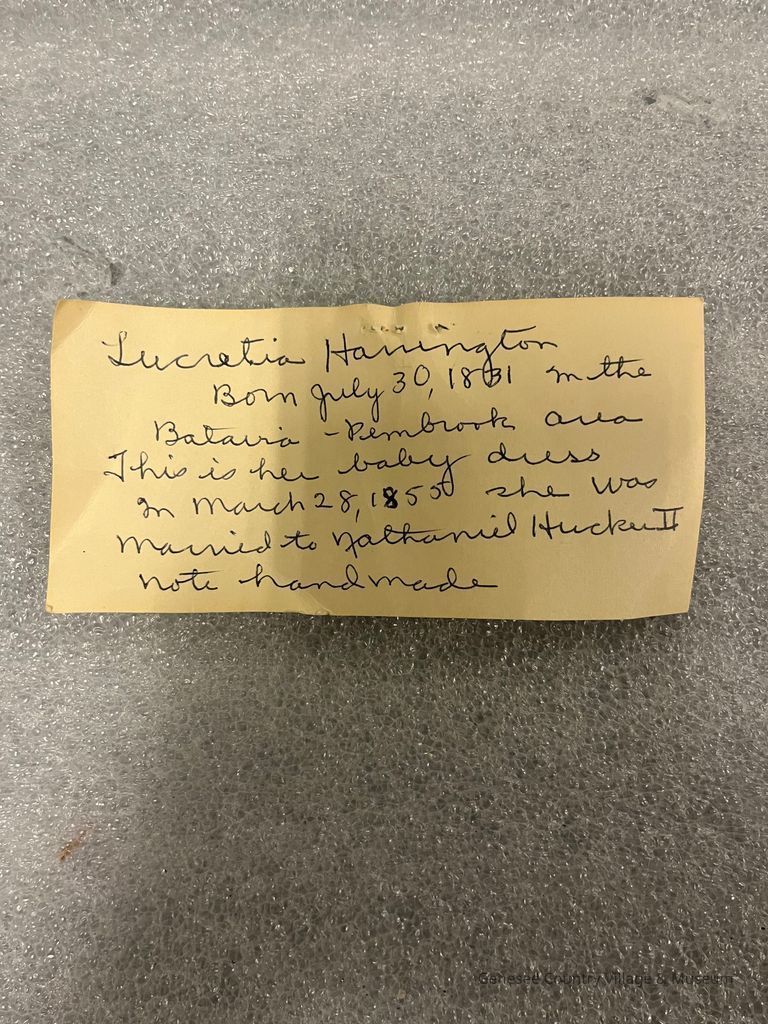 Lucretia Harrington
Born July 30, 1831 in the
Batavia - Pembrook area
This is her baby dress
In March 28, 1855 she was
Married to Nathaniel Hucker II
note handmade
Genesee Country Village & Museum